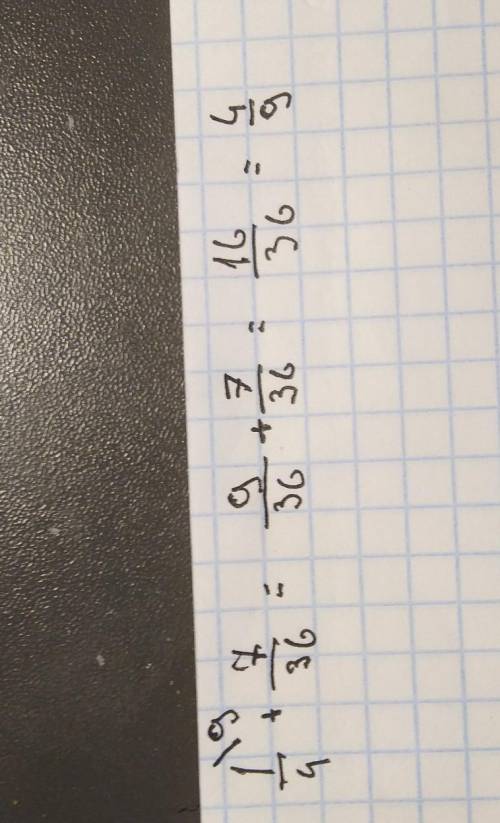 1\9/4 + 7/36 = 9/36 + 7/36 = 16/36 = 4/9